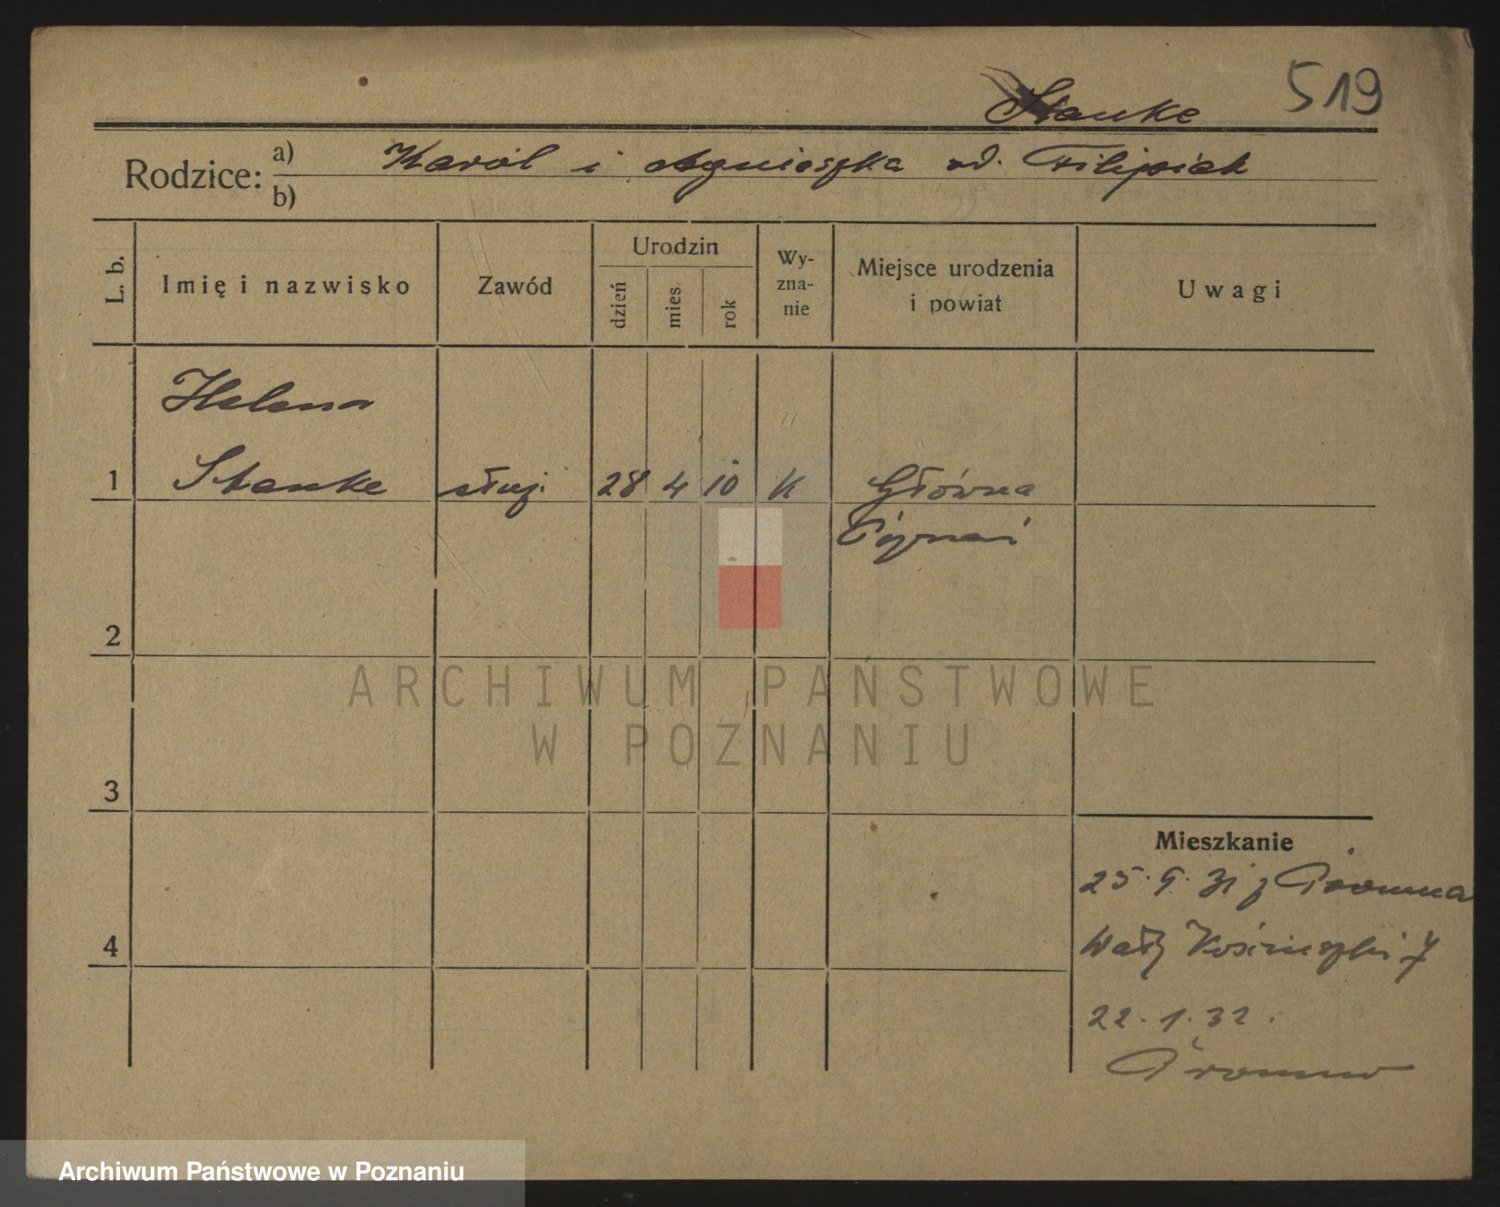 Stanke 519
Rodzice: a) Karol i Agnieszka od. Filipiak
b)
L. b. Imię i nazwisko Zawód Urodzin dzień mies rok Wy-zna-nie Miejsce urodzenia i powiat Uwagi
Helena
1 Stanke służ. 28 4 10 K Główna
Poznań
2
ARCHIWUM PAŃSTWOWE
W POZNANIU
3
Mieszkanie
25. 9. 31 z
4 Wały Kościuszki 7
22. 1. 32.
Archiwum Państwowe w Poznaniu